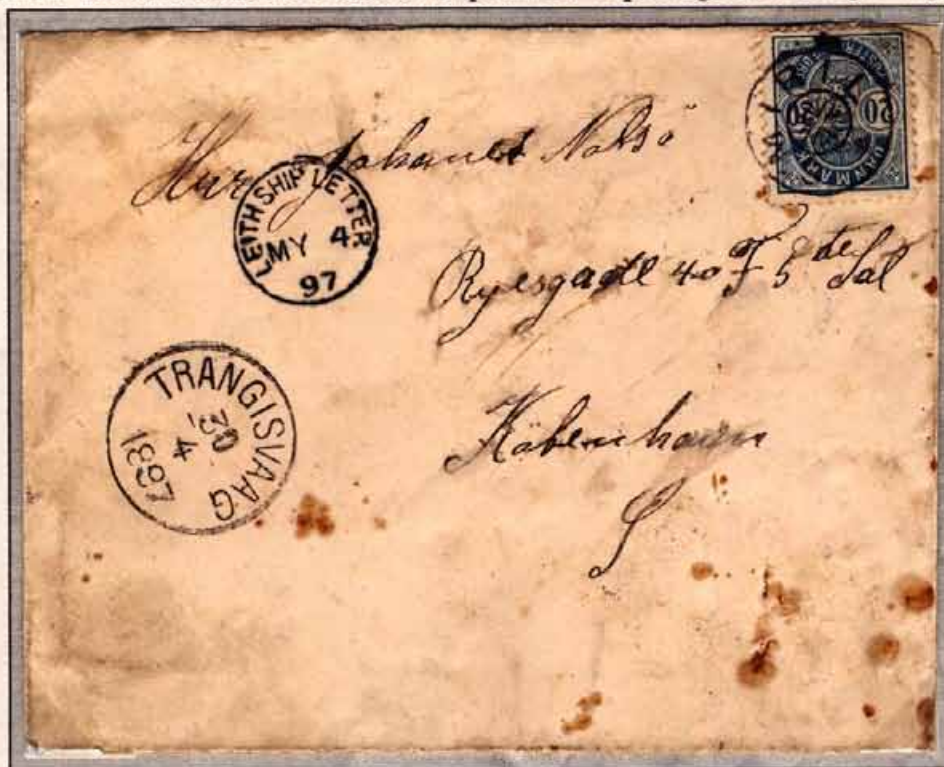 Herr Johannes Nolsö
LEITH SHIP LETTER
MY 4
97
Ryesgade 40 F 5 te Sal
TRANGISVAAG
30
4
1897
Köbenhavn
DANMARK
20 20